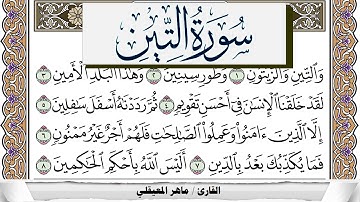 سُورَةُ التِّينِ
وَالتِّينِ وَالزَّيْتُونِ ١ وَطُورِ سِينِينَ ٢ وَهَٰذَا الْبَلَدِ الْأَمِينِ ٣
لَقَدْ خَلَقْنَا الْإِنسَانَ فِي أَحْسَنِ تَقْوِيمٍ ٤ ثُمَّ رَدَدْنَاهُ أَسْفَلَ سَافِلِينَ ٥
إِلَّا الَّذِينَ آمَنُوا وَعَمِلُوا الصَّالِحَاتِ فَلَهُمْ أَجْرٌ غَيْرُ مَمْنُونٍ ٦
فَمَا يُكَذِّبُكَ بَعْدُ بِالدِّينِ ٧ أَلَيْسَ اللَّهُ بِأَحْكَمِ الْحَاكِمِينَ ٨
القارئ / ماهر المعيقلي